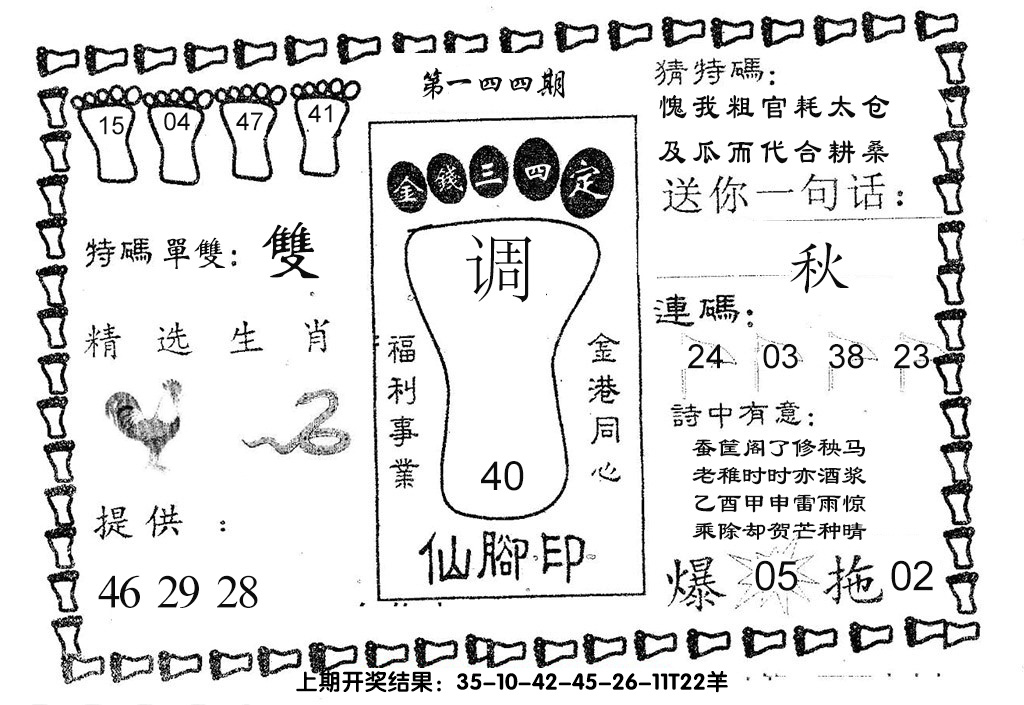 第一四四期
15 04 47 41
特碼單雙：雙
精选生肖
提供：
46 29 28
金錢三四定
调
福利事業
金港同心
40
仙腳印
猜特碼：
愧我粗官耗太仓
及瓜而代合耕桑
送你一句话：
秋
連碼：
24 03 38 23
詩中有意：
蚕筐阁了修秧马
老稚时时亦酒浆
乙酉甲申雷雨惊
乘除却贺芒种晴
爆 05 拖 02
上期开奖结果：35-10-42-45-26-11T22羊